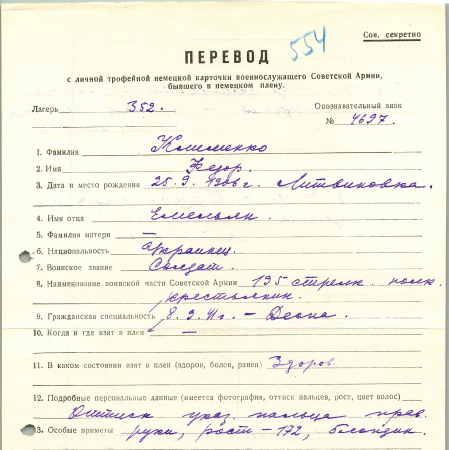 554
Сов. секретно
ПЕРЕВОД
с личной трофейной немецкой карточки военнослужащего Советской Армии,
бывшего в немецком плену.
Лагерь 352. Опознавательный знак
№ 4697.
1. Фамилия Клименко
2. Имя Федор.
3. Дата и место рождения 25.9.1906г. Литвиновка.
4. Имя отца Емельян.
5. Фамилия матери —
6. Национальность украинец.
7. Воинское звание Солдат.
8. Наименование воинской части Советской Армии 195 стрелк. полк.
крестьянин.
9. Гражданская специальность 8.9.41г. – Десна.
10. Когда и где взят в плен —
11. В каком состоянии взят в плен (здоров, болен, ранен) Здоров.
12. Подробные персональные данные (имеется фотография, оттиск пальцев, рост, цвет волос)
Оттиск указ. пальца прав.
3. Особые приметы руки, рост – 172, блондин.